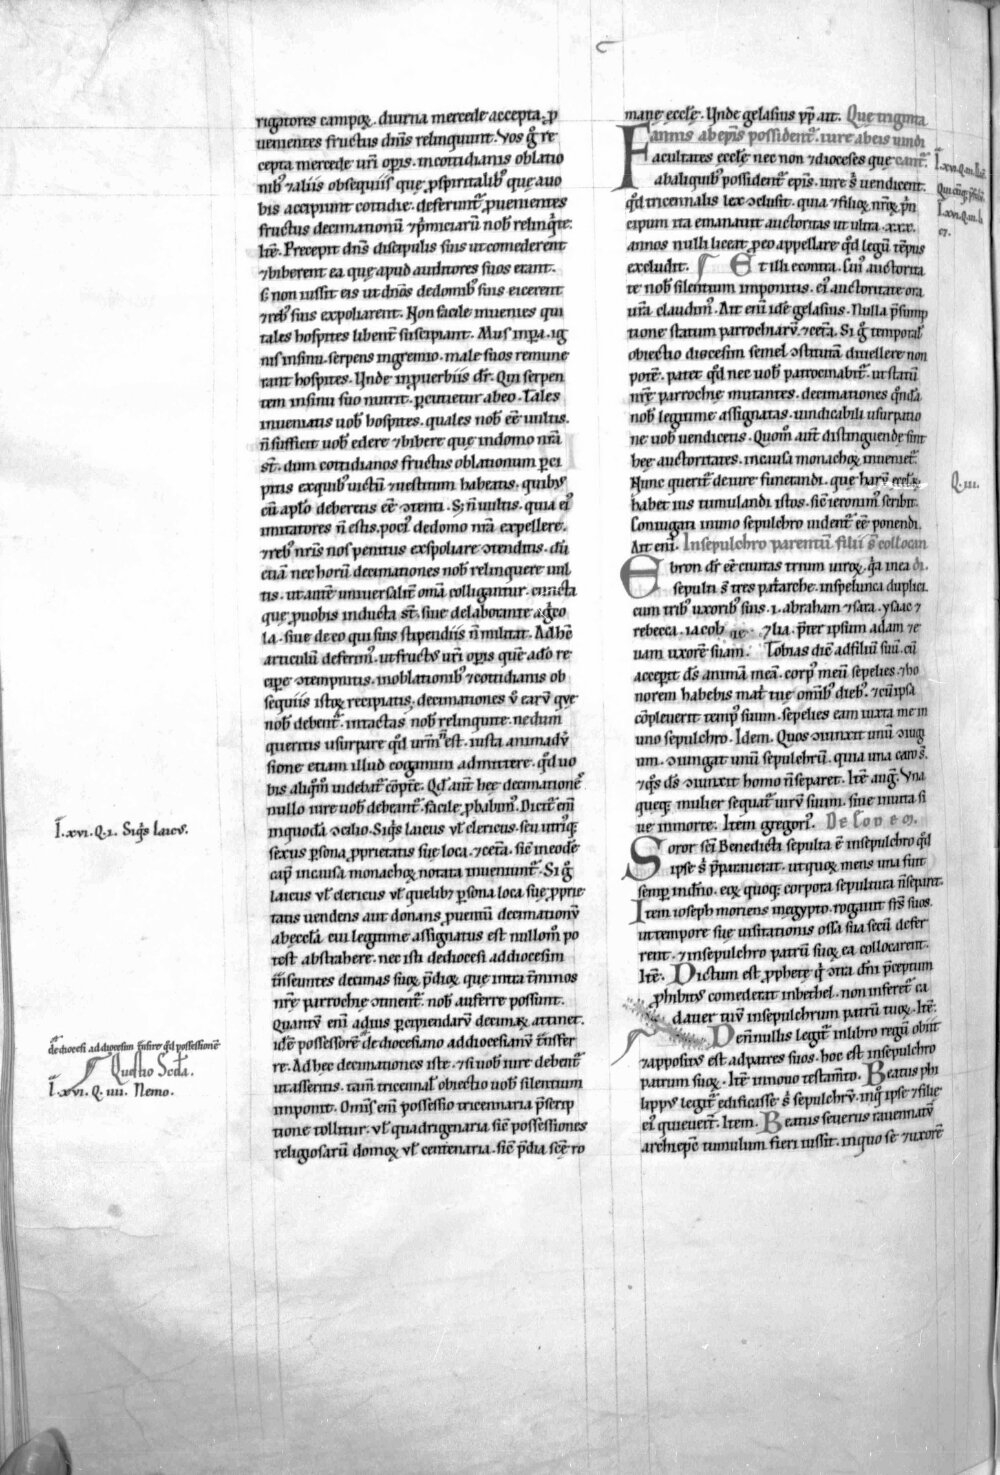 rigatores campoꝝ. diurna mercede accepta. ꝓ
uenientes fructus dn̄is relinquunt. Vos g̊ re
cepta mercede urī opis. incottidianis oblatio
nibꝰ ⁊aliis obsequiis que ꝓspiritalibꝰ que auo
bis accipiunt cotidie. deferunt᷑ ꝓuenientes
fructus decimationū ⁊p̄miciarū nob̄ relinq̄te.
Itē. Precepit dn̄s discipulis suis ut comederent
⁊biberent ea que apud auditores suos erant.
s̄ non iussit eis ut dn̄os dedomibꝰ suis eicerent
⁊rebꝰ suis expoliarent. Non facile inuenies qui
tales hospites libent̄ suscipiant. Mus inꝑa. ig
nis insinu. serpens ingremio. male suos remune
rant hospites. Vnde inꝓuerbiis dr̄. Qui serpen
tem insinu suo nutrit. ꝑcutietur abeo. Tales
inueniatis uob̄ hospites. quales nob̄ eē uultis.
n̄ sufficit uob̄ edere ⁊bibere que indomo nr̄a
st̄. dum cottidianos fructus oblationum ꝑci
pitis exquibꝰ uictū ⁊uestitum habeatis. quibꝰ
cū apl̄o deberetis eē ↄtenti. Si n̄ uultis. quia eiꝰ
imitatores n̄ estis. pociꝰ dedomo nr̄a expellere.
⁊rebꝰ nr̄is nos penitus exspoliare ↄtenditis. dū
etiā nec horū decimationes nob̄ relinquere uul
tis. ut autē uniuersalit̄ om̄a colligantur. cuncta
que ꝓuobis inducta st̄. siue delaborante agͥco
la. siue de eo qui suis stipendiis n̄ militat. Ad hc̄
articulū deferimꝰ. ut fructꝰ urī opis quē ad̄o re
cipe ↄtempnitis. inoblationibꝰ ⁊cottidianis ob
sequiis istoꝝ recipiatis. decimationes ū earū que
nob̄ debent᷑. intactas nob̄ relinquite. nedum
queritis usurpare qd̄ urm̄ n̄ est. iusta animadū
sione etiam illud cogamini admittere. qd̄ uo
bis aliqm̄ uidebat᷑ cōpete. Qd̄ aut̄ hee decimationes
nullo iure uob̄ debeant᷑. facile ꝓbabimꝰ. Dicit᷑ em̄
inquodā ↄcilio. Siqͥs laicus ul̄ clericus. seu utriꝰqꝫ
sexus ꝑsona ꝓprietatis sue loca. ⁊ceta. sic̄ ineodē
cap̄ incausa monachoꝝ notata inueniunt᷑. Si g̊
laicus ul̄ clericus ul̄ quelibꝫ ꝑsona loca sue ꝓprie
tatis uendens aut donans. ꝓuentū decimationū
abeccl̄a cui legitime assignatus est nullom̄ po
test abstrahere. nec ista dediocesi addiocesim
tn̄seuntes decimas suoꝝ p̄dioꝝ que intra t̄minos
nr̄e parrochie ↄtinent᷑. nob̄ auferre possunt.
Quantū eni adius ꝑcipiendarū decimaꝝ attinet.
idē possessorē de diocesiano addiocesianū tn̄sfer
re. Ad hec decimationes iste. ⁊si uob̄ iure debent᷑
ut asseritis. tam̄ tricennal̄ obiectio uob̄ silentium
imponit. Omīs em̄ possessio tricennaria p̄scrip
tione tollitur. ul̄ quadrigenaria sic̄ possessiones
religiosarū domoꝝ ul̄ centenaria. sic̄ p̄dia scē ro
I. xvi. Q. i. Siqͥs laicꝰ.
dediocesi addiocesim tn̄sire qd̄ possessionē
Questio Scd̄a.
I. xvi. Q. iiii. Nemo.
mane ęccl̄e. Vnde gelasius pp̄ ait. Que triginta
annis ab ep̄is possident᷑. iure abeis uindi
Facultates eccl̄e nec non ⁊dioceses que cant᷑.
abaliquibꝰ possident᷑ ep̄is. iure s̄ uendicent.
qd̄ tricennalis lex ↄclusit. quia ⁊filioꝝ nr̄oꝝ p̄n
cipum ita emanauit auctoritas ut ultra .xxx.
annos nulli liceat ꝓeo appellare qd̄ legū tēpus
excludit. Et illi econtra. Sini auctorita
te nob̄ silentium imponitis. eiꝰ auctoritate ora
ur̄a claudimꝰ. Ait eni idē gelasius. Nulla p̄sump
tione statum parrochiarū. ⁊ceta. Si g̊ temporal̄
obiectio diocesim semel ↄstitutā diuellere non
potē. patet qd̄ nec uob̄ patrocinabit᷑. ut statū
nr̄e parrochie mutantes. decimationes qn̄dā
nob̄ legitime assignatas. uindicabili usurpatio
ne uob̄ uendicetis. Quom̄ aut̄ distinguende sint
hee auctoritates. incausa monachoꝝ inueniet᷑.
Nunc querit᷑ de iure funerandi. que harū eccl̄aꝝ
habet ius tumulandi istos. sic̄ ieronimꝰ scribit.
Coniugati inuno sepulchro uident᷑ eē ponendi.
Ait eni. Insepulchro parentū filii st̄ collocan
Ebron dr̄ eē ciuitas trium uiroꝝ. qͥa inea di.
sepulti st̄ tres patͥarche. inspelunca duplici.
cum tribꝰ uxoribꝰ suis .i. abraham ⁊sara. ysaac ⁊
rebecca. iacob ⁊lia. p̄ter ipsum adam ⁊e
uam uxorē suam. Tobias dic̄ adfiliū suū. cū
accepit ds̄ animā meā. corpꝰ meū sepelies. ⁊ho
norem habebis mat̄ tue om̄ibꝰ diebꝰ. ⁊cū ipsa
cōpleuerit tempꝰ suum. sepelies eam iuxta me in
uno sepulchro. Idem. Quos ↄiunxit unū ↄiug
um. ↄiungat unū sepulchrū. quia una caro s̄.
⁊qͦs ds̄ ↄiunxit homo n̄ separet. Itē aug̃. Vna
queqꝫ mulier sequat᷑ uirū suum. siue inuita si
ue inmorte. Item gregoriꝰ. De eodem.
Soror scī Benedicti sepulta ē insepulchro qd̄
ipse s̄ p̄parauerat. ut quoꝝ mens una fuit
semꝑ indn̄o. eoꝝ quoqꝫ corpora sepultura n̄ separet.
Item ioseph moriens inegypto. rogauit fr̄s suos.
ut tempore sue uisitationis ossa sua secū defer
rent. ⁊insepulchro patrū suoꝝ ea collocarent.
Itē. Dictum est ꝓphete qͥ ↄtra dn̄i p̄ceptum
ꝓhibitꝰ comederat inbethel. non inferet᷑ ca
dauer tuū insepulchrum patrū tuoꝝ. Itē.
Dennullis legit᷑ inlibro regū obiit
⁊appositꝰ est adpatres suos. hoc est insepulchro
patrum suoꝝ. Itē innouo testam̄to. Beatus phi
lippꝰ legit᷑ edificasse s̄ sepulchrū. inqͦ ipse ⁊filie
eiꝰ quieuert̄. Item. Beatus seuerus rauennatū
archiep̄c tumulum fieri iussit. inquo se ⁊uxorē
I. xvi. Q. iii.
Q. iii.